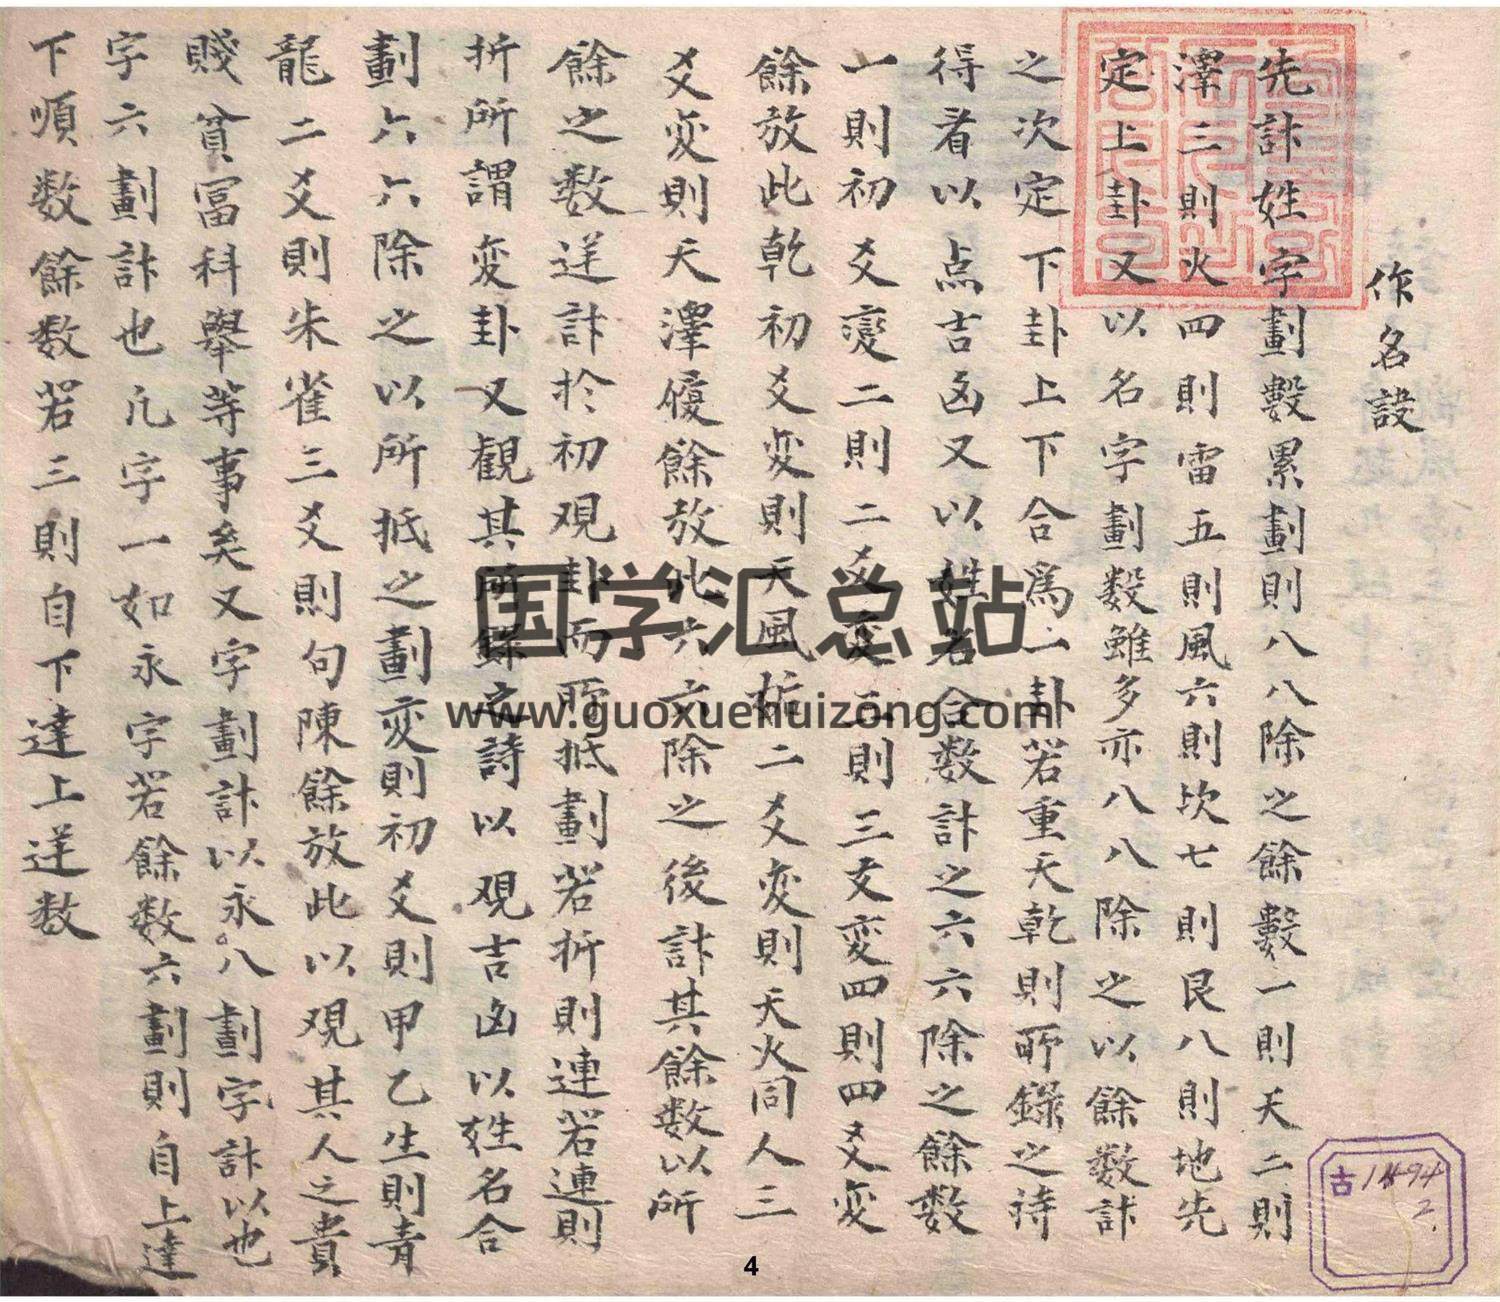 作名訣
先計姓字劃數累劃則八八除之餘數一則天二則
澤三則火四則雷五則風六則坎七則艮八則地先
定上卦又以名字劃数雖多亦八八除之以餘数計
之次定下卦上下合爲一卦若重天乾則所錄之詩
得看以点吉凶又以姓名合数計之六六除之餘数
一則初爻變二則二爻变三則三爻变四則四爻变
餘放此乾初爻变則天風姤二爻变則天火同人三
爻变則天澤履餘放此六六除之後計其餘数以所
餘之数送計於初观卦而所抵劃若折則連若連則
折所謂变卦又觀其所錄之詩以观吉凶以姓名合
劃六六除之以所抵之劃变則初爻則甲乙生則青
龍二爻則朱雀三爻則句陳餘放此以观其人之貴
賤貧冨科舉等事矣又字劃計以永八劃字計以也
字六劃計也凡字一如永字若餘数六劃則自上達
下順数餘数若三則自下達上逆数
古 1494
2.
国学汇总站
www.guoxuehuizong.com
4